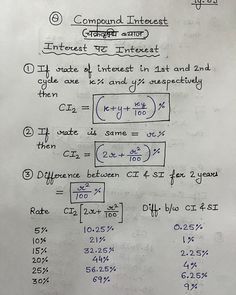 ⊛ Compound Interest
(चक्रवृद्धि ब्याज)
Interest पर Interest
① If rate of interest in 1st and 2nd
cycle are x% and y% respectively
then
CI₂ = (x+y+xy/100)%
② If rate is same = x%
CI₂ = (2x + x²/100)%
③ Difference between CI & SI for 2 years
= x²/100 %
Rate CI₂[2x+x²/100] Diff. b/w CI & SI
5% 10.25% 0.25%
10% 21% 1%
15% 32.25% 2.25%
20% 44% 4%
25% 56.25% 6.25%
30% 69% 9%